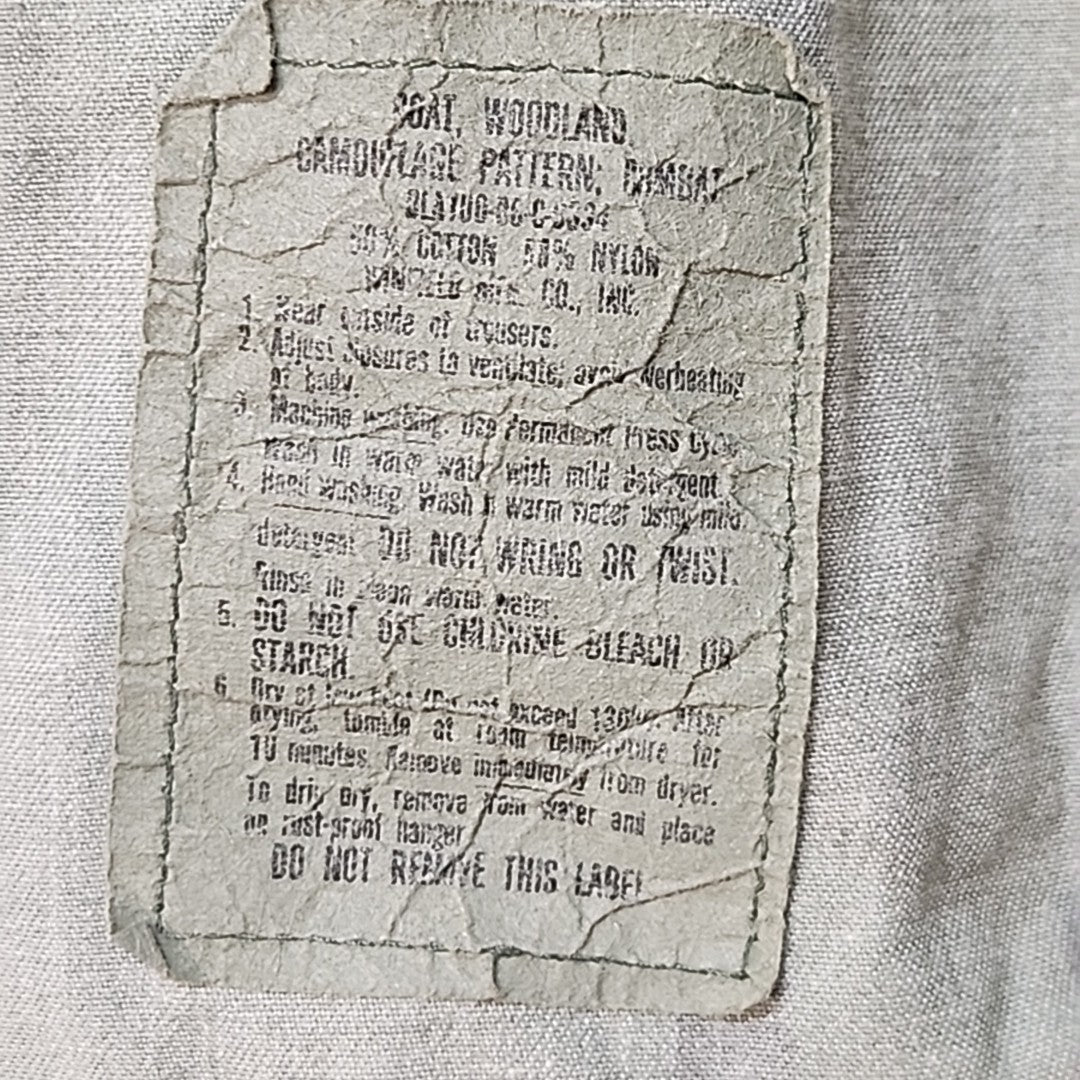 COAT, WOODLAND,
CAMOUFLAGE PATTERN; COMBAT
50% COTTON 50% NYLON
WINFIELD MFG. CO., INC.
1. Wear outside of trousers.
2. Adjust closures to ventilate; avoid overheating
of body.
3. Machine washing: Use Permanent Press cycle.
Wash in warm water with mild detergent.
4. Hand washing: Wash in warm water using mild
detergent. DO NOT WRING OR TWIST.
Rinse in clean warm water.
5. DO NOT USE CHLORINE BLEACH OR
STARCH.
6. Dry at low heat (Do not exceed After
drying, tumble at room temperature for
10 minutes. Remove immediately from dryer.
To drip dry, remove from water and place
on rust-proof hanger
DO NOT REMOVE THIS LABEL